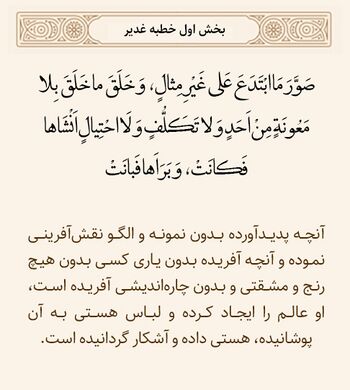 بخش اول خطبه غدیر
صَوَّرَ مَا ابْتَدَعَ عَلی غَیْرِ مِثالٍ، وَ خَلَقَ ما خَلَقَ بِلا
مَعُونَةٍ مِنْ اَحَدٍ وَ لا تَکَلُّفٍ وَ لَا احْتِیالٍ اَنْشَاَها
فَکانَتْ، وَ بَرَاَها فَبانَتْ
آنچه پدیدآورده بدون نمونه و الگو نقش‌آفرینی
نموده و آنچه آفریده بدون یاری کسی بدون هیچ
رنج و مشقتی و بدون چاره‌اندیشی آفریده است،
او عالم را ایجاد کرده و لباس هستی به آن
پوشانیده، هستی داده و آشکار گردانیده است.